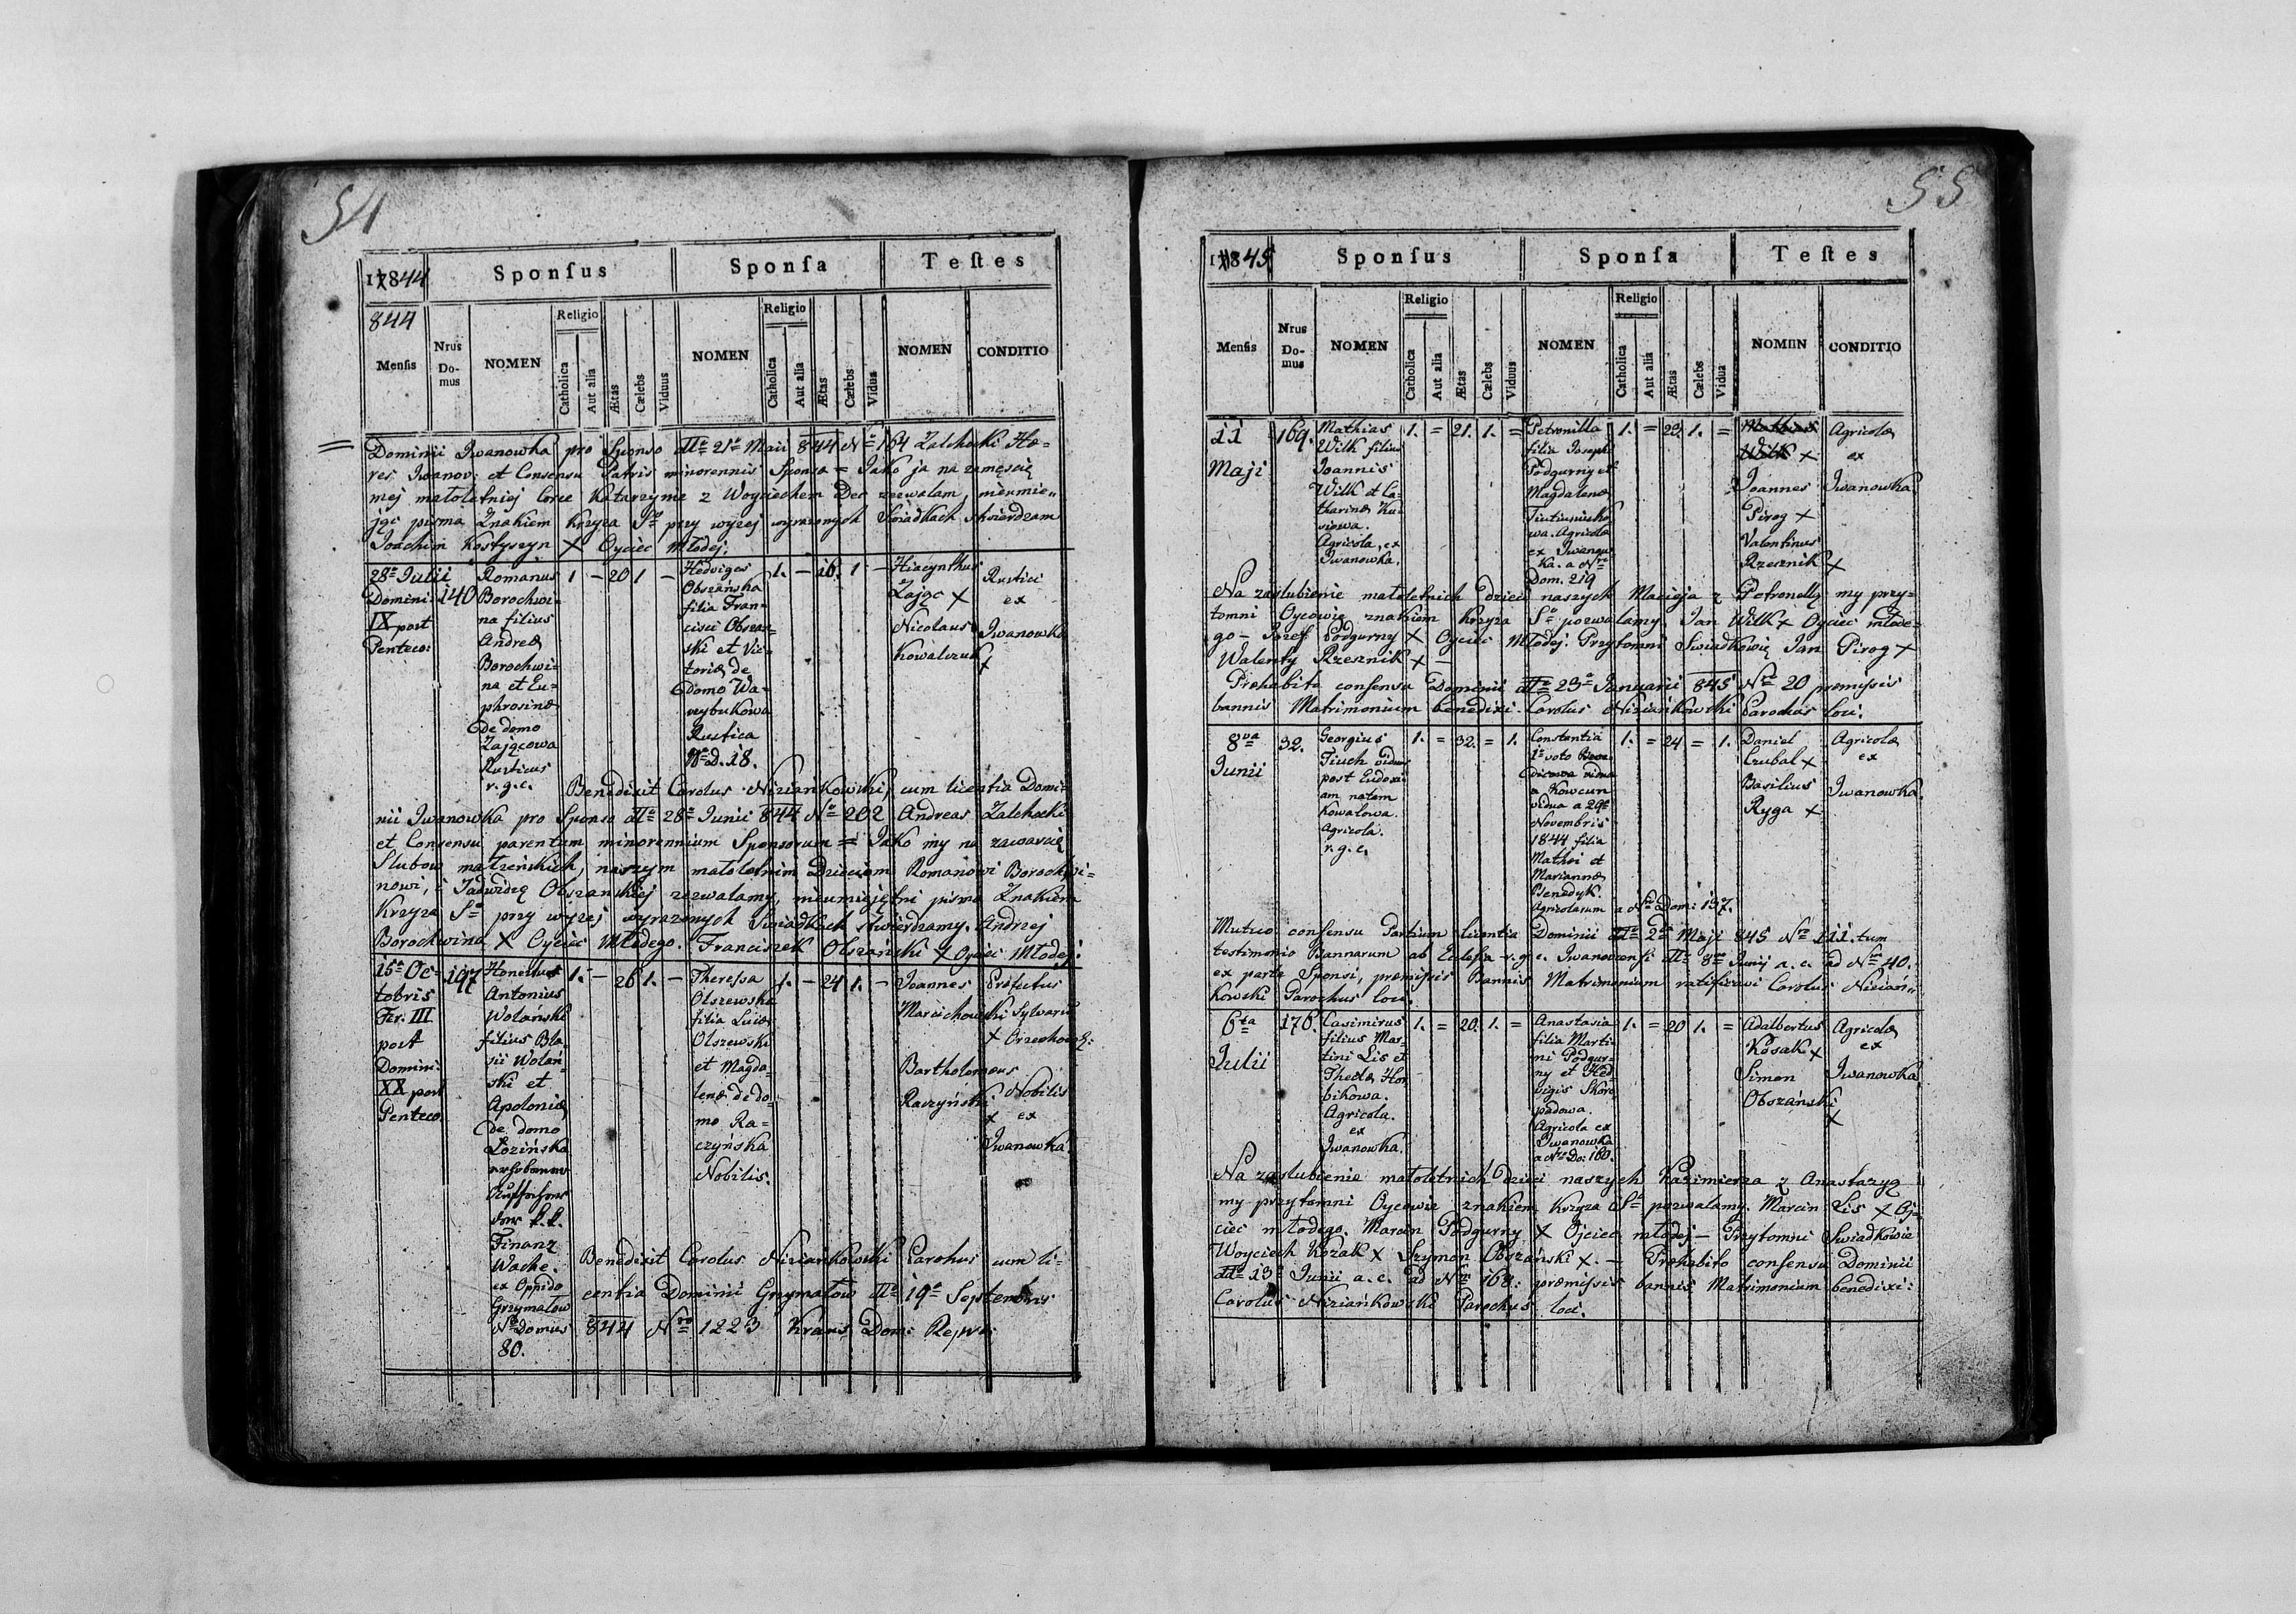 54
1844
Sponsus
Sponsa
Testes
844
Mensis
Nrus Domus
NOMEN
Religio
Catholica
Aut alia
Ætas
Cælebs
Viduus
NOMEN
Religio
Catholica
Aut alia
Ætas
Cælebs
Vidua
NOMEN
CONDITIO
Dominii Iwanowka pro Sponso dto 21a Maii 844 No 164 Zalchocki Hæ-
res Iwanov: et Consensu Patris minorennis Sponsa = Jako ja na zamęście
mej małoletniej Corce Katarzynie z Woyciechem Dec zezwalam, nieumie-
jąc pisma Znakiem Krzyża So przy wyzej wyrazonych Swiadkach stwierdzam
Joachim Kostyszyn X Oyciec Młodej.
28a Julii
Domini:
IX post
Penteco:
140
Romanus
Borochwi-
na filius
Andreæ
Borochwi-
na et Eu-
phrosinæ
de domo
Zającowa
Rusticus
r. g. c.
1 - 20 1 -
Hedviges
Obszańska
filia Fran-
cisci Obszań-
ski et Vic-
toriæ de
Domo Wa-
Rustica
No D. 18.
1. - 16. 1 -
Hiacynthus
Zając X
Nicolaus
Kowalczuk
X
Rustici
ex
Iwanowka
Benedixit Carolus Niziańkowski, cum licentia Domi-
nii Iwanowka pro Sponso dto 28a Junii 844 No 202 Andreas Zalchocki
et Consensu parentum minorennium Sponsorum = Jako my na zawarcie
Slubow małżeńskich, naszym małoletnim Dzieciom Romanowi Borochwi-
nowi, i Jadwidze Obszanskiej zezwalamy, nieumiejętni pisma Znakiem
Krzyża So przy wyzej wyrazonych Swiadkach stwierdzamy. Andrzej
Borochwina X Oyciec Młodego. Franciszek Obszański X Oyciec Młodej:
15a Oc-
tobris
Fer. III
post
Domini:
XX post
Penteco.
197
Honestus
Antonius
Wolanski
filius Bla-
sii Wolań-
ski et
Apoloniæ
de domo
Łozińska
k. k.
Finanz
Wache.
ex Oppido
Grzymałow
No Domus
80.
1. - 26 1. -
Theressa
Olszewska
filia Lucæ
Olszewski
et Magda-
lenæ de do-
mo Ra-
czyńska
Nobilis.
1. - 24 1. -
Joannes
Marcichowski
X
Bartholomeus
Raczyński
X
Præfectus
Sylvarum
Nobilis
ex
Iwanowka.
Benedixit Carolus Niziańkowski Parohus cum li-
centia Dominii Grzymałow dto 19a Septembris
844 Nro 1223 Kraus Dom: Repre:
55
1845
Sponsus
Sponsa
Testes
Mensis
Nrus Domus
NOMEN
Religio
Catholica
Aut alia
Ætas
Cælebs
Viduus
NOMEN
Religio
Catholica
Aut alia
Ætas
Cælebs
Vidua
NOMEN
CONDITIO
11
Maji
169.
Mathias
Wilk filius
Joannis
Wilk et Ca-
tharinæ
Agricola, ex
Iwanowka.
1. = 21. 1. =
Petronilla
filia Josephi
Podgurny et
Magdalenæ
Agricolæ
ex Iwanow-
ka. a Nro
Dom. 219
1. = 23. 1. =
Mathias
Wilk X
Joannes
Pirog X
Valentinus
Rzesznik X
Agricolæ
ex
Iwanowka.
Na zaslubienie małoletnich dzieci naszych Macieja z Petronellą my przy-
tomni Oycowie znakiem Krzyża So pozwalamy. Jan Wilk X Oyciec młode-
go - Jozef Podgurny X Oyciec Młodej. Przytomni Swiadkowie Jan Pirog X
Walenty Rzesznik X -
Præhabito consensu Dominii dto 23a Januarii 845 Nro 20 præmissis
bannis Matrimonium benedixi. Carolus Niziańkowski Parochus loci.
8va
Junii
32.
Georgius
Tiuch viduus
post Eudoxi-
am natam
Kowalowa.
Agricola.
r. g. c.
1. = 32. = 1.
Constantia
1o voto
vidua
a Kowcun
vidua a 29a
Novembris
1844 filia
Mathei et
Mariannæ
Benedyk.
Agricolarum a No Dom: 137.
1. = 24 = 1.
Daniel
Czubal X
Basilius
Ryga X
Agricolæ
ex
Iwanowka.
Mutuo consensu Partium licentia Dominii dto 2da Maji 845 Nro 111. tum
testimonio Bannarum ab Eclesia r. g. c. Iwanovcensi dto 8va Junij a. c. ad Nrm 40.
ex parte Sponsi, præmissis Bannis Matrimonium ratificavi Carolus Niziań-
kowski Parochus loci.
6ta
Julii
176.
Casimirus
filius Mar-
tini Lis et
Theclæ Hor-
bikowa.
Agricola.
ex
Iwanowka.
1. = 20. 1. =
Anastasia
filia Marti-
ni Podgur-
ny et Hed-
vigis Skoro-
padowa.
Agricola ex
Iwanowka
a Nro Do: 160.
1. = 20 1. =
Adalbertus
Kosak X
Simon
Obszański
X
Agricolæ
ex
Iwanowka
Na zaslubienie małoletnich dzieci naszych Kazimierza z Anastazyą
my przytomni Oycowie znakiem Krzyża So pozwalamy. Marcin Lis X Oj-
ciec młodego. Marcin Podgurny X Ojciec młodej - Przytomni Swiadkowie
Woyciech Kozak X Szymon Obszański X. - Præhabito consensu Dominii
dto 13a Junii a. c. ad Nrm 168: præmissis bannis Matrimonium benedixi:
Carolus Niziańkowski Parochus loci.